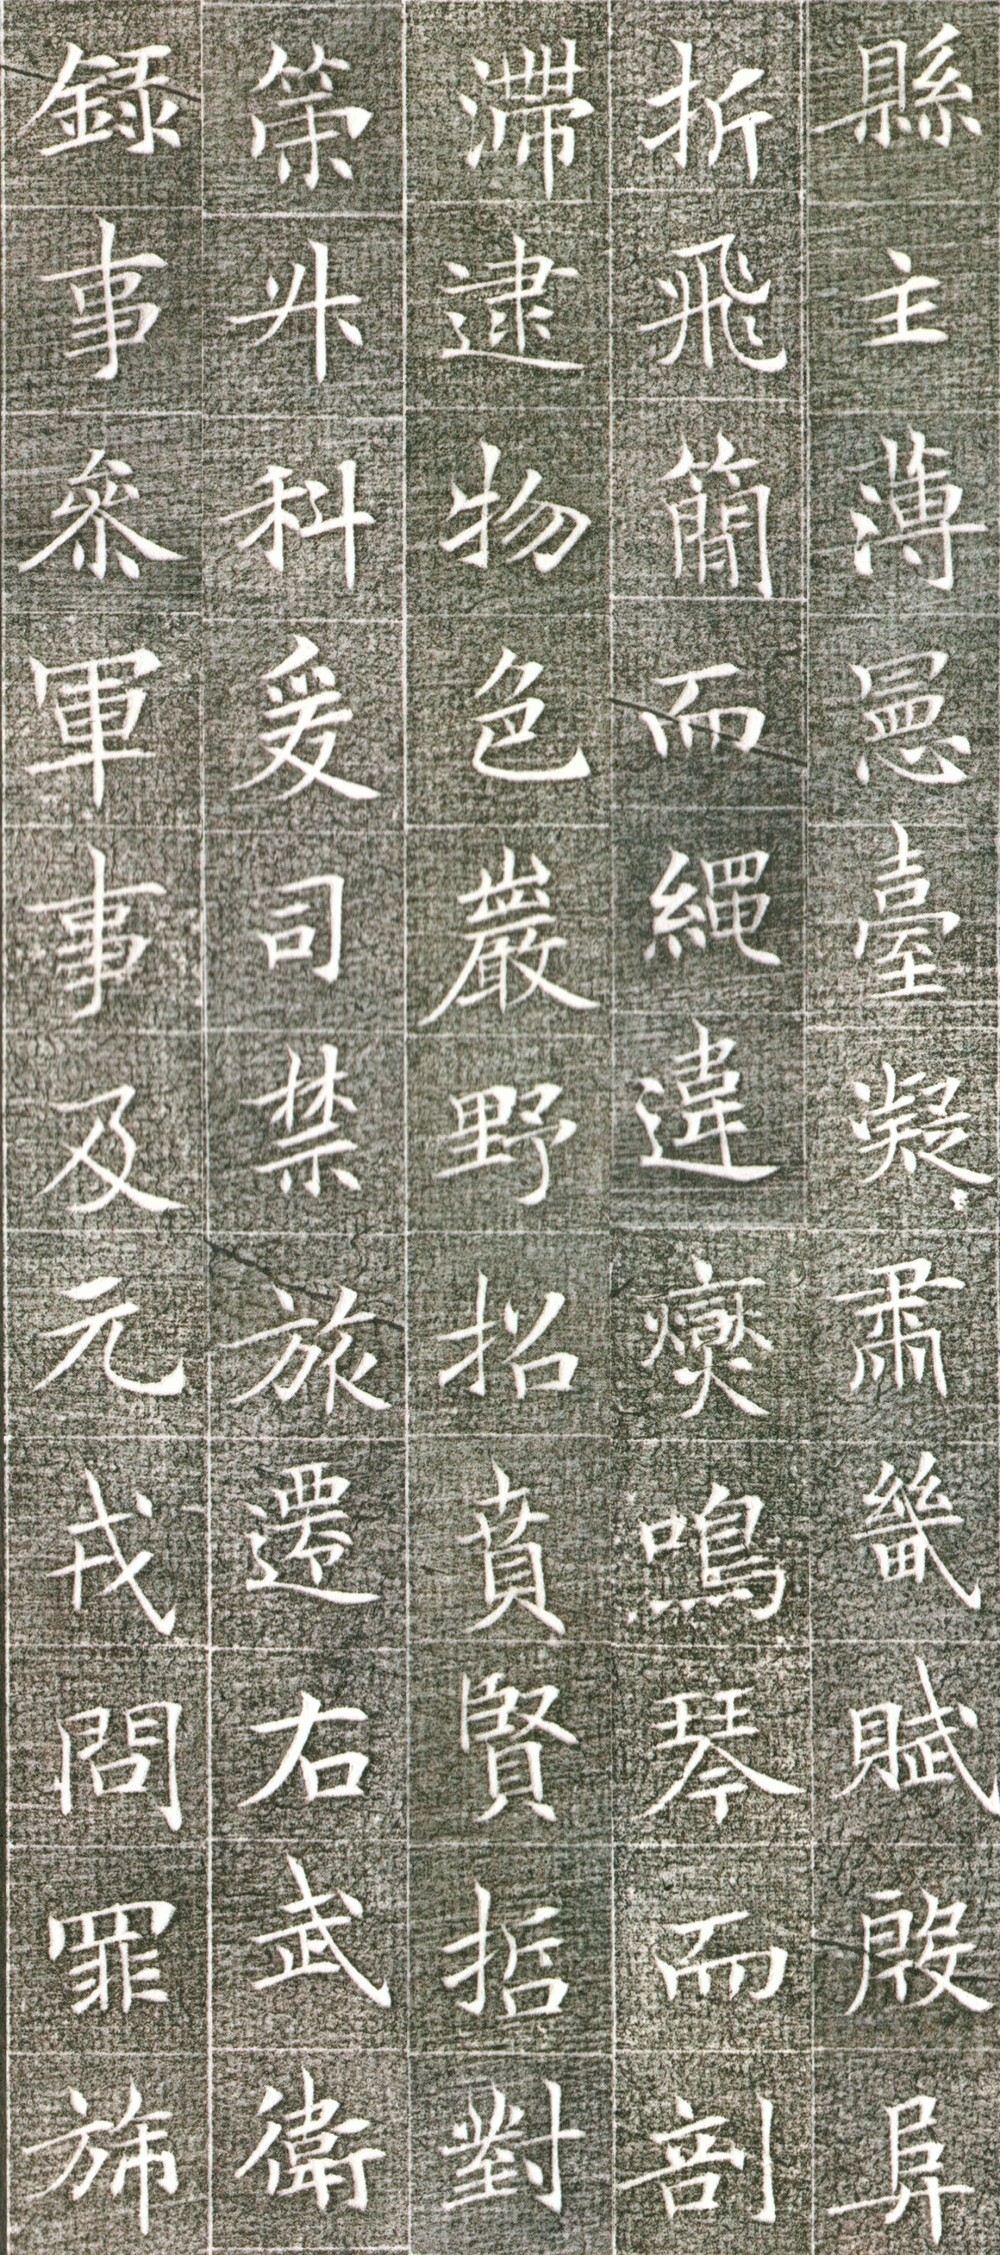 縣主薄憲臺凝肅畿賦殷阜
折飛簡而繩違爕鳴琴而剖
滯逮物色巖野招賁賢哲對
策升科爰司禁旅遷右武衛
錄事參軍事及元戎問罪旆